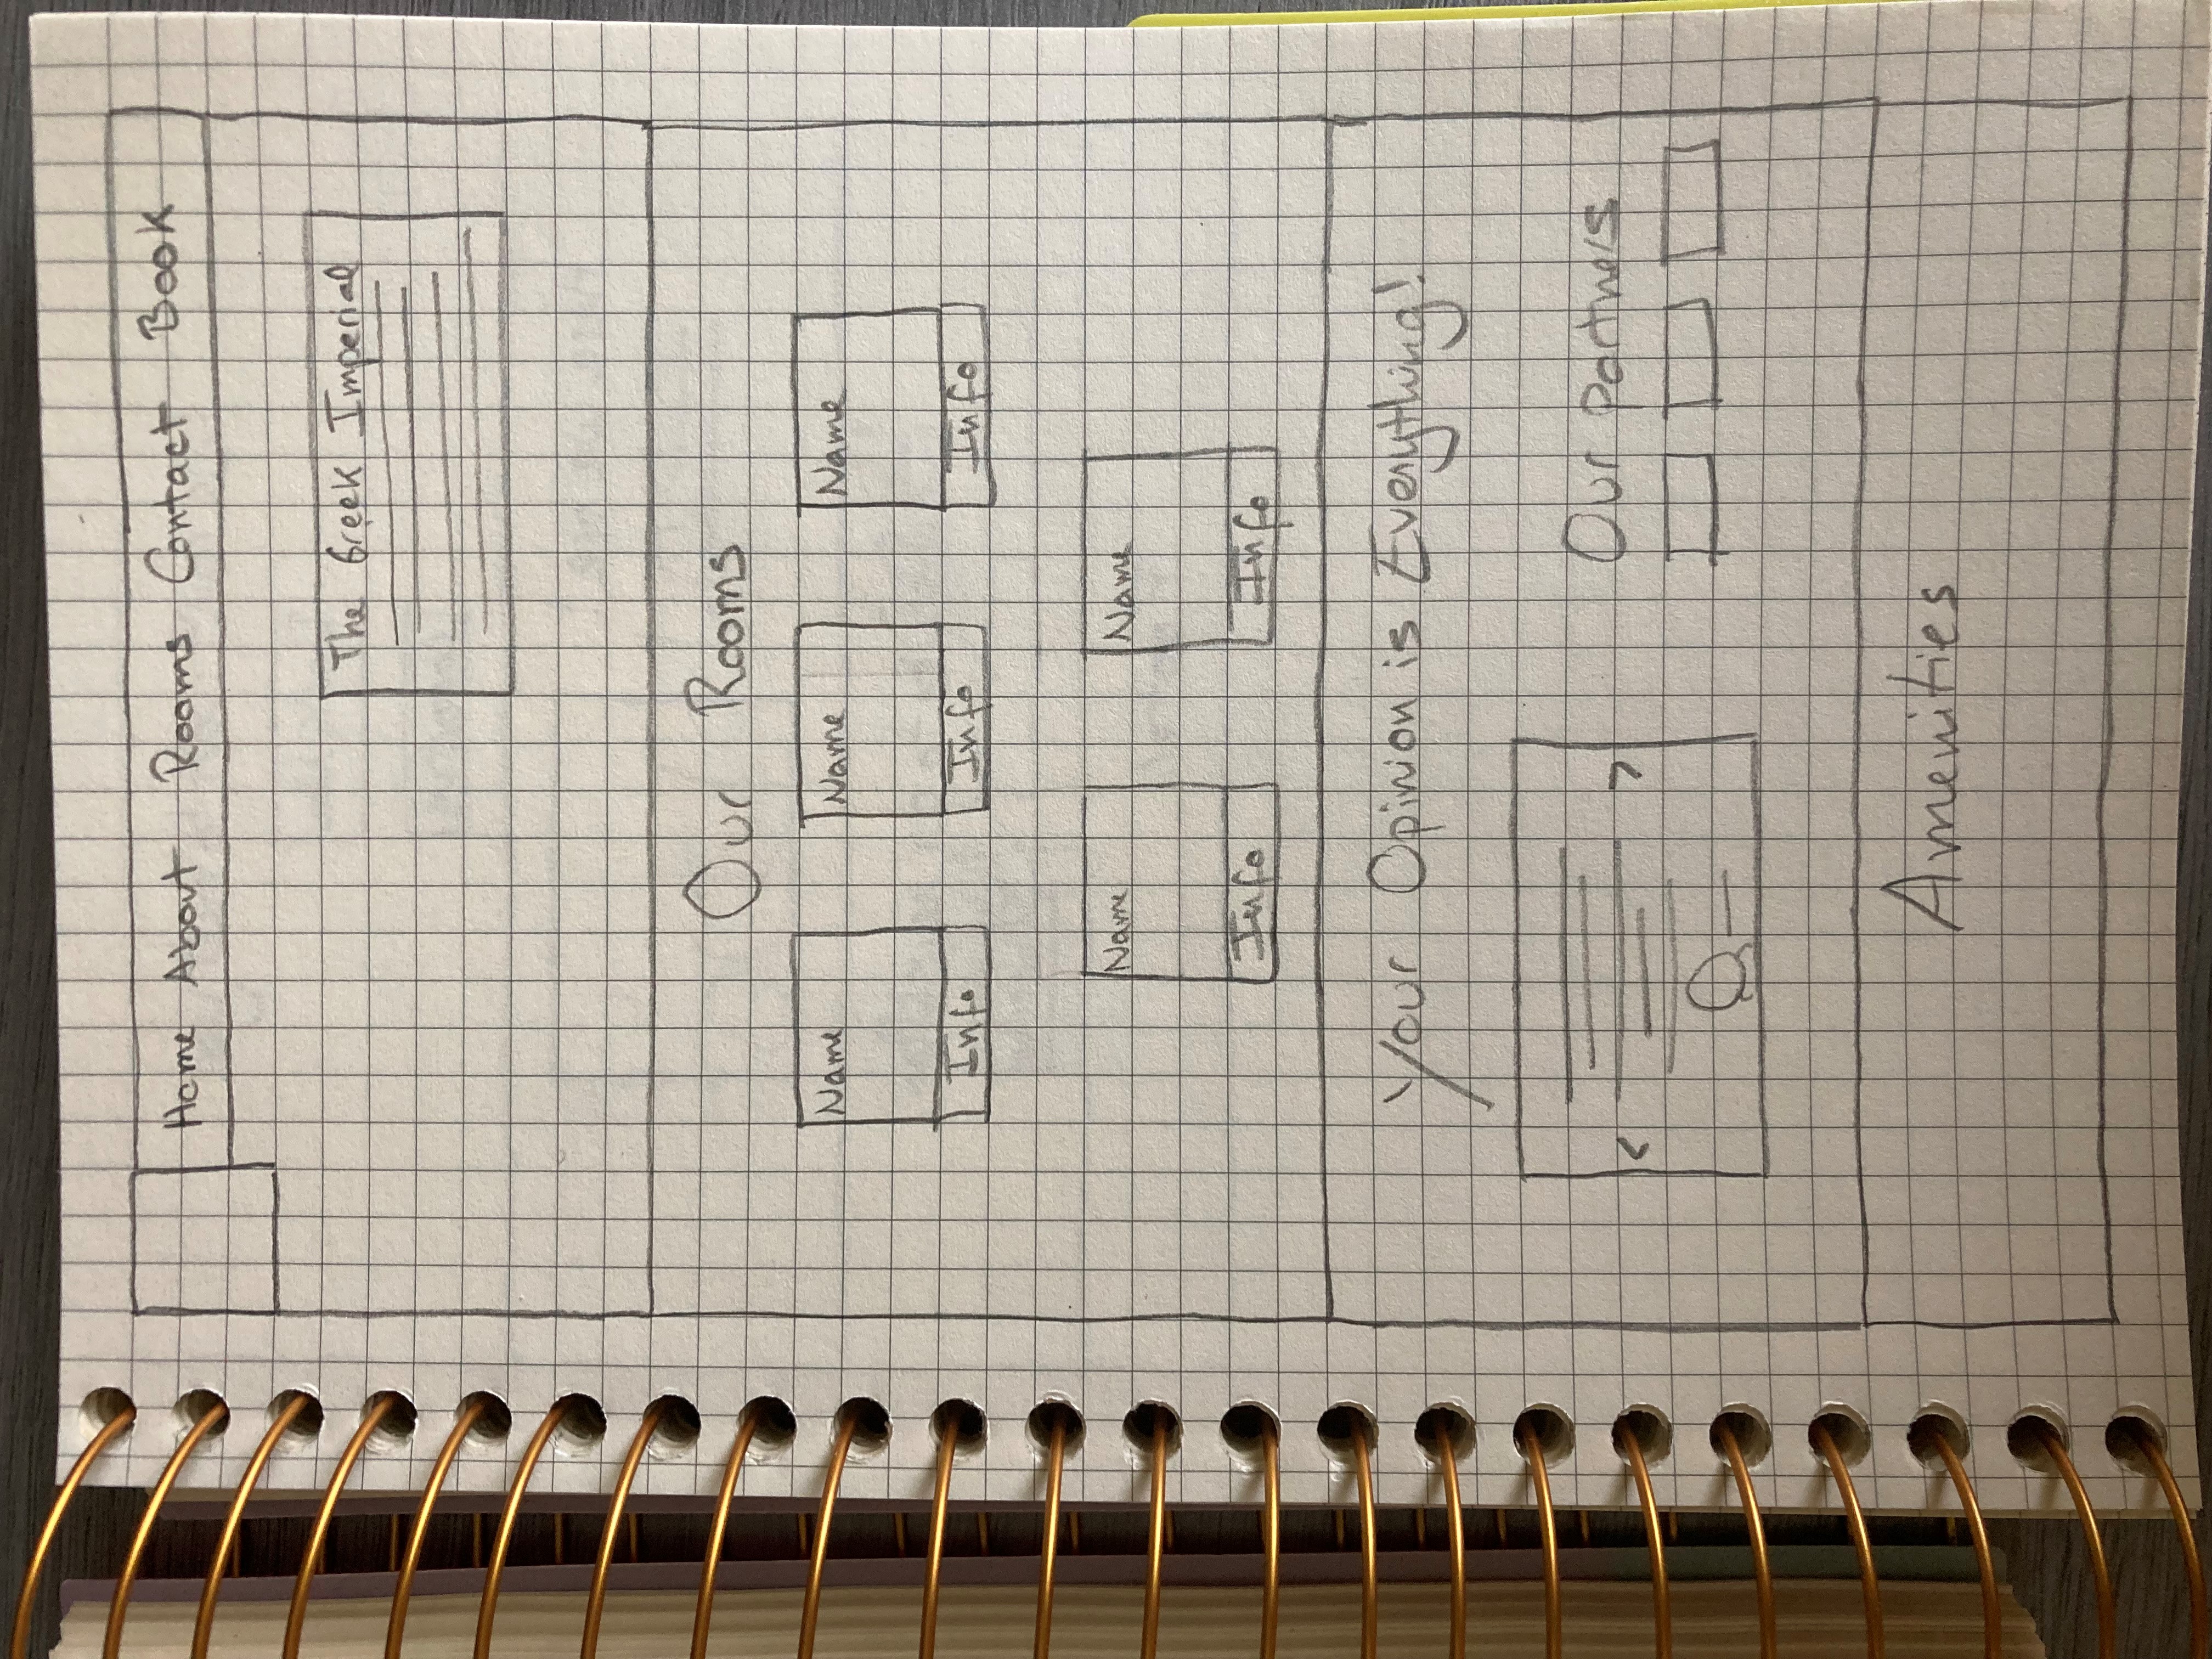 Home About Rooms Contact Book
The Greek Imperial
Our Rooms
Name Name Name
Info Info Info
Name Name
Info Info
Your Opinion is Everything!
< >
Our partners
Amenities